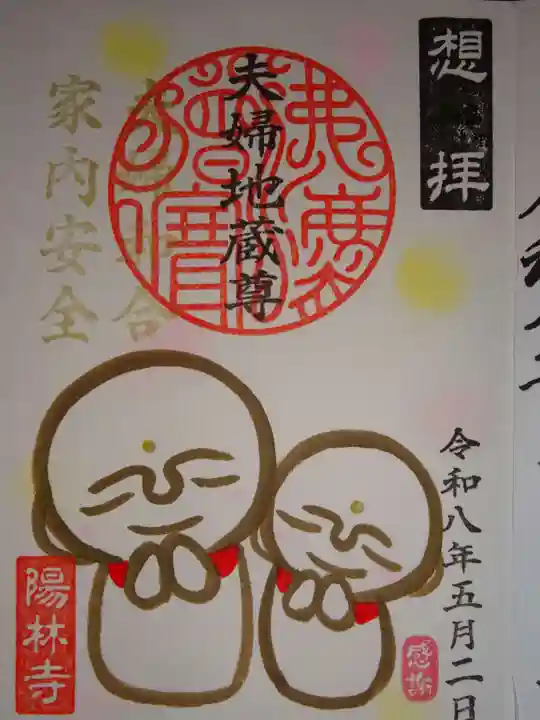 想拝
夫婦地蔵尊
夫婦和合
家内安全
令和八年五月二日
感謝
陽林寺